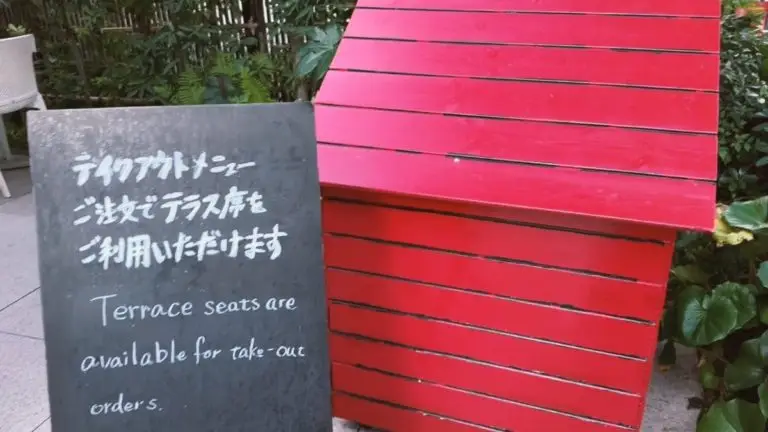 テイクアウトメニュー
ご注文でテラス席を
ご利用いただけます
Terrace seats are
available for take-out
orders.